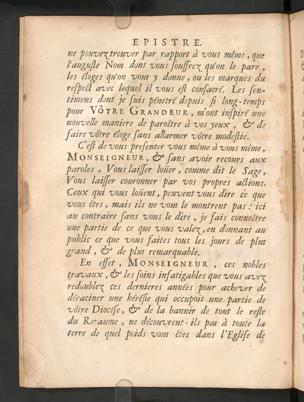 EPISTRE.
ne pouvez trouver par rapport à vous même, que
l'auguste Nom dont vous souffrez qu'on le pare,
les éloges qu'on vous y donne, ou les marques du
respect avec lequel il vous est consacré. Les sen-
timens dont je suis pénetré depuis si long-temps
pour VÔTRE GRANDEUR, m'ont inspiré une
nouvelle maniere de paroître à vos yeux, & de
faire vôtre éloge sans allarmer vôtre modestie.
C'est de vous presenter vous même à vous même,
MONSEIGNEUR, & sans avoir recours aux
paroles, Vous laisser loüer, comme dit le Sage,
Vous laisser couronner par vos propres actions.
Ceux qui vous loüent, peuvent vous dire ce que
vous êtes, mais ils ne vous le montrent pas: ici
au contraire sans vous le dire, je fais connoître
une partie de ce que vous valez, en donnant au
public ce que vous faites tous les jours de plus
grand, & de plus remarquable.
En effet, MONSEIGNEUR, ces nobles
travaux, & les soins infatigables que vous avez
redoublez ces dernieres années pour achever de
déraciner une héresie qui occupoit une partie de
vôtre Diocése, & de la bannir de tout le reste
du Royaume, ne découvrent-ils pas à toute la
terre de quel poids vous êtes dans l'Eglise de